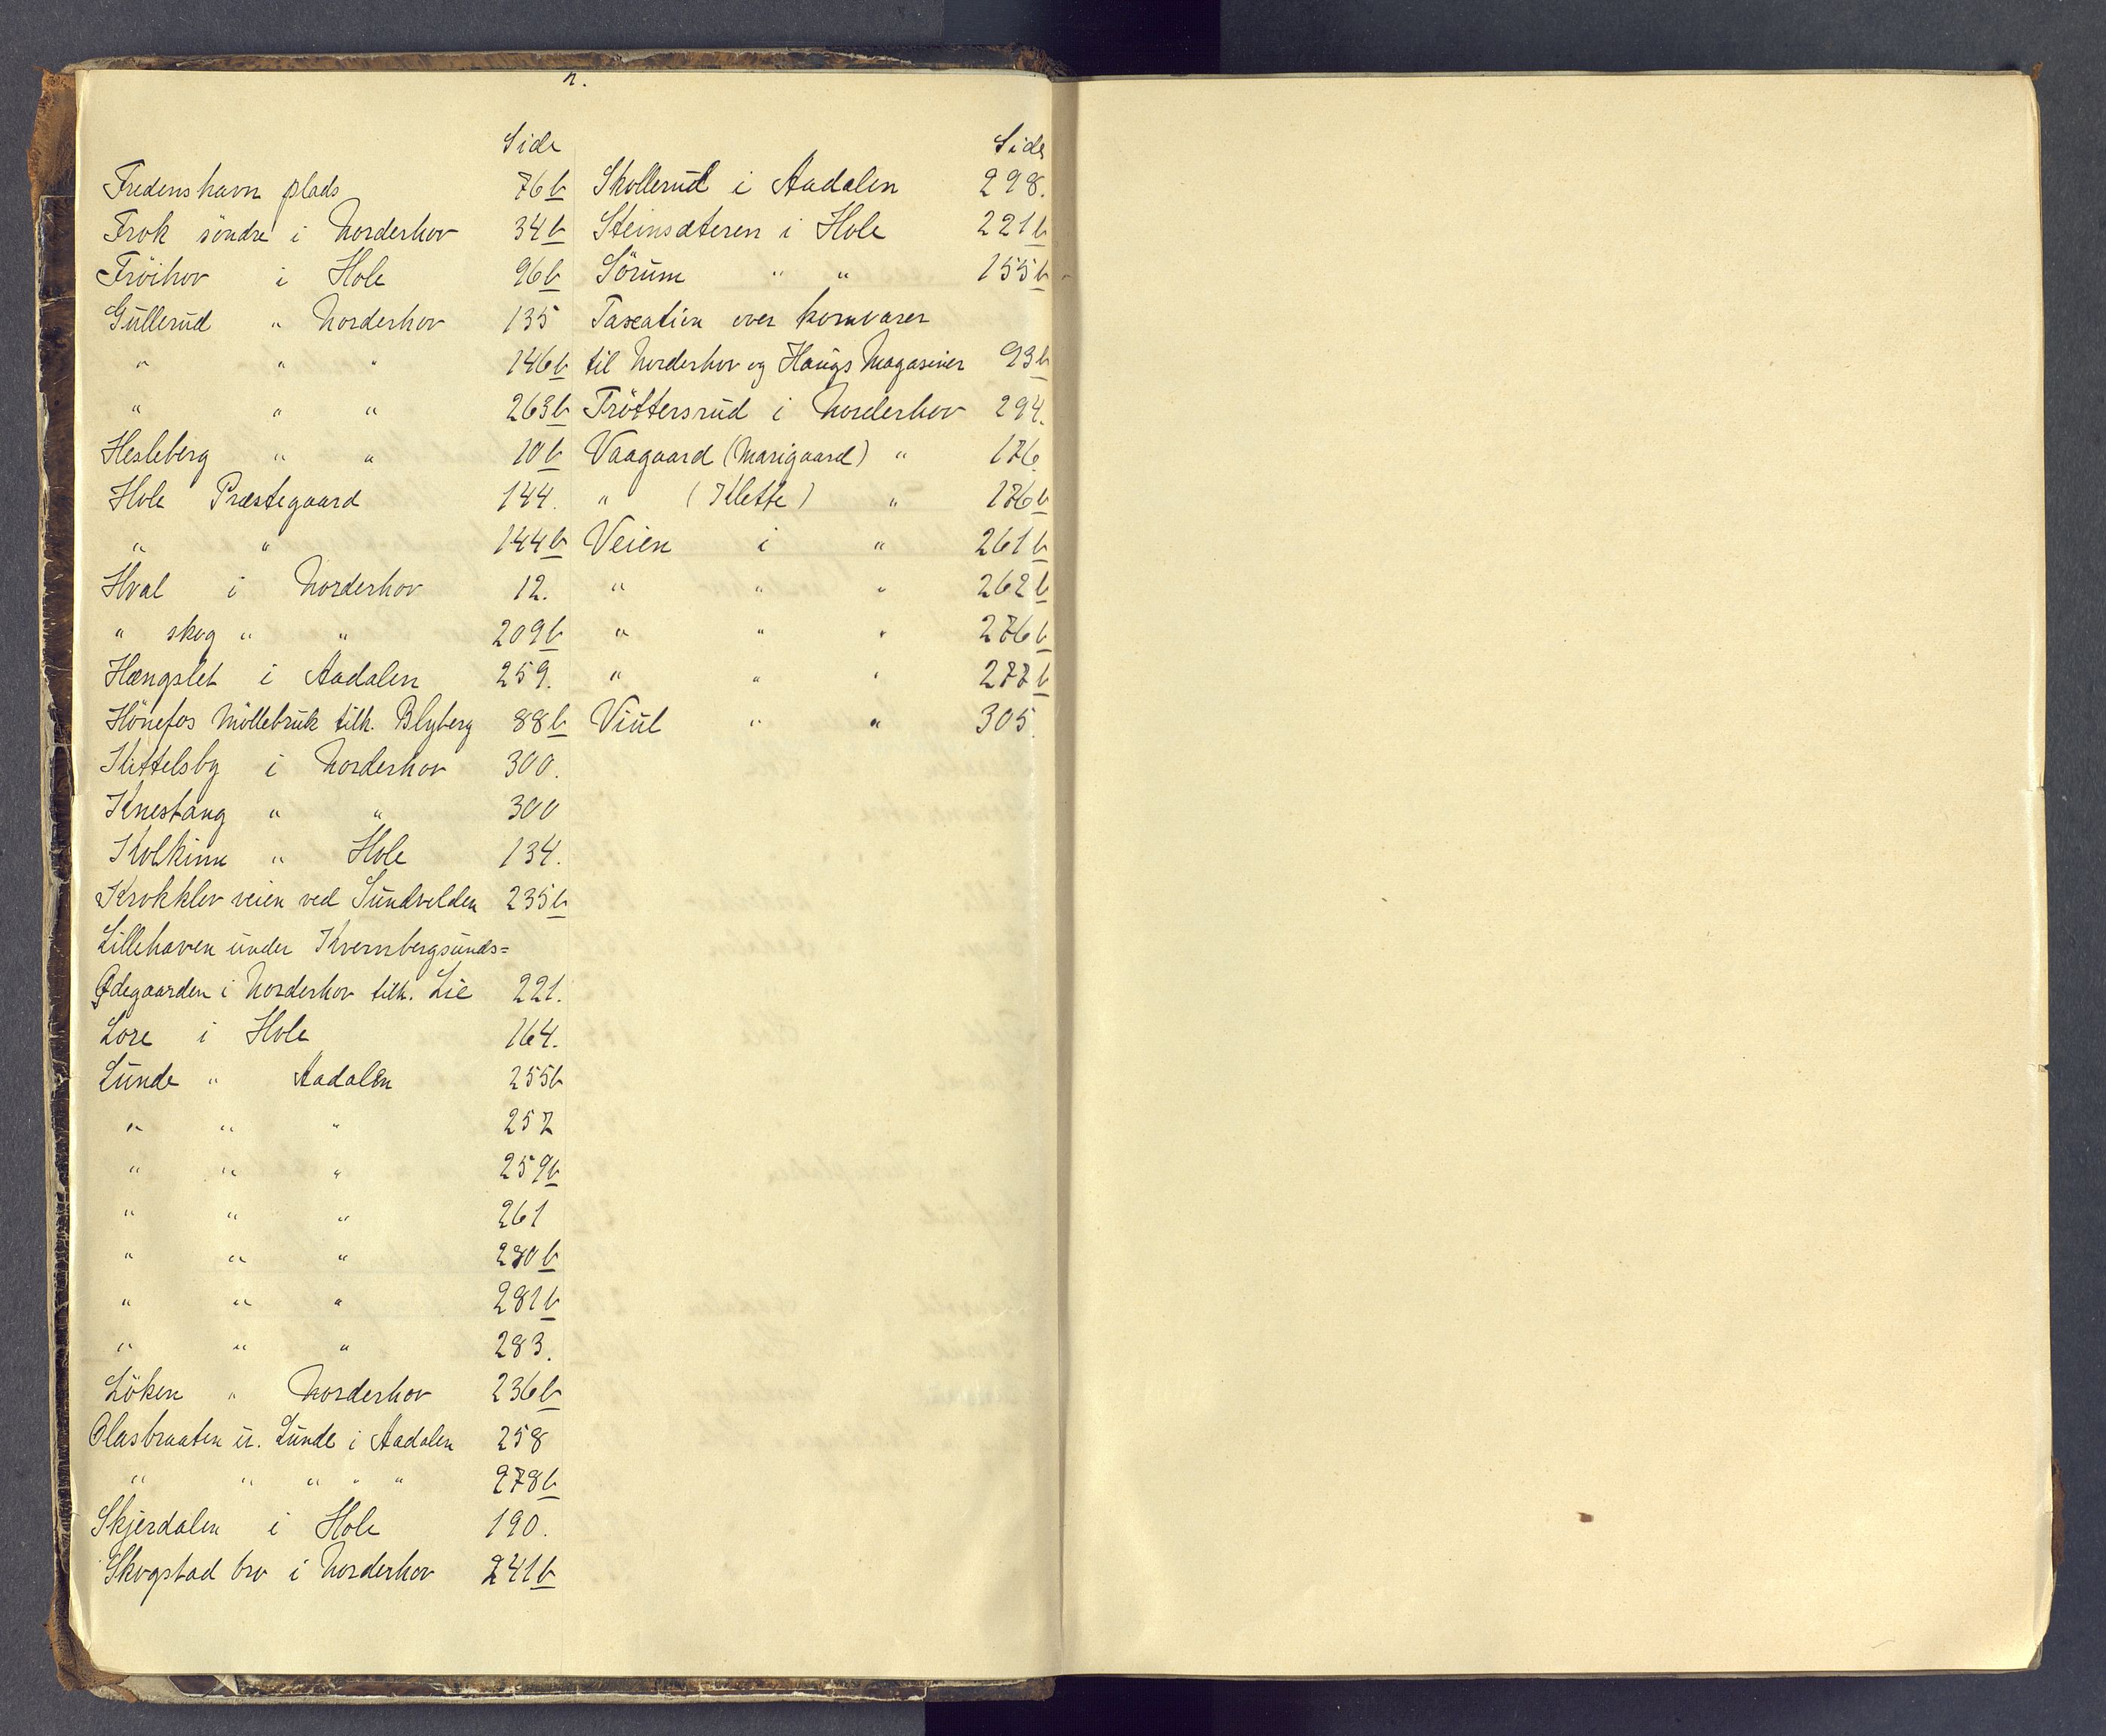 n.
Side
Fredenshavn plads 76b
Frok söndre i Norderhov 34b
Fröihov i Hole 96b
Gullerud " Norderhov 135
" " " 146b
" " " 263b
Hesleberg " " 10b
Hole Præstegaard 144.
" " 144b
Hval i Norderhov 12.
" skog " " 209b
Hængslet i Aadalen 259.
Hönefos Möllebruk tilh. Blyberg 88b
Kittelsby i Norderhov 300.
Knestang " " 300
Kolkinn " Hole 134.
Krokklev veien ved Sundvolden 235b
Lillehaven under Kvernbergsunds=
Ødegaarden i Norderhov tilh. Lie 221.
Lore i Hole 164.
Lunde " Aadalen 255b
" " " 257
" " " 259b
" " " 261
" " " 280b
" " " 281b
" " " 283.
Löken " Norderhov 236b
Olasbraaten u. Lunde i Aadalen 258
" " " " " 278b
Skjerdalen i Hole 190.
Skogstad bro i Norderhov 241b
Side
Skollerud i Aadalen 298.
Steinsæteren i Hole 221b
Sörum " " 155b
Taxation over kornvarer
til Norderhov og Haugs Magasiner 93b
Tröttersrud i Norderhov 294.
Vaagaard (Marigaard) " 176.
" (Klette) " 176b
Veien i " 261b
" " " 262b
" " " 276b
" " " 277b
Viul " " 305.